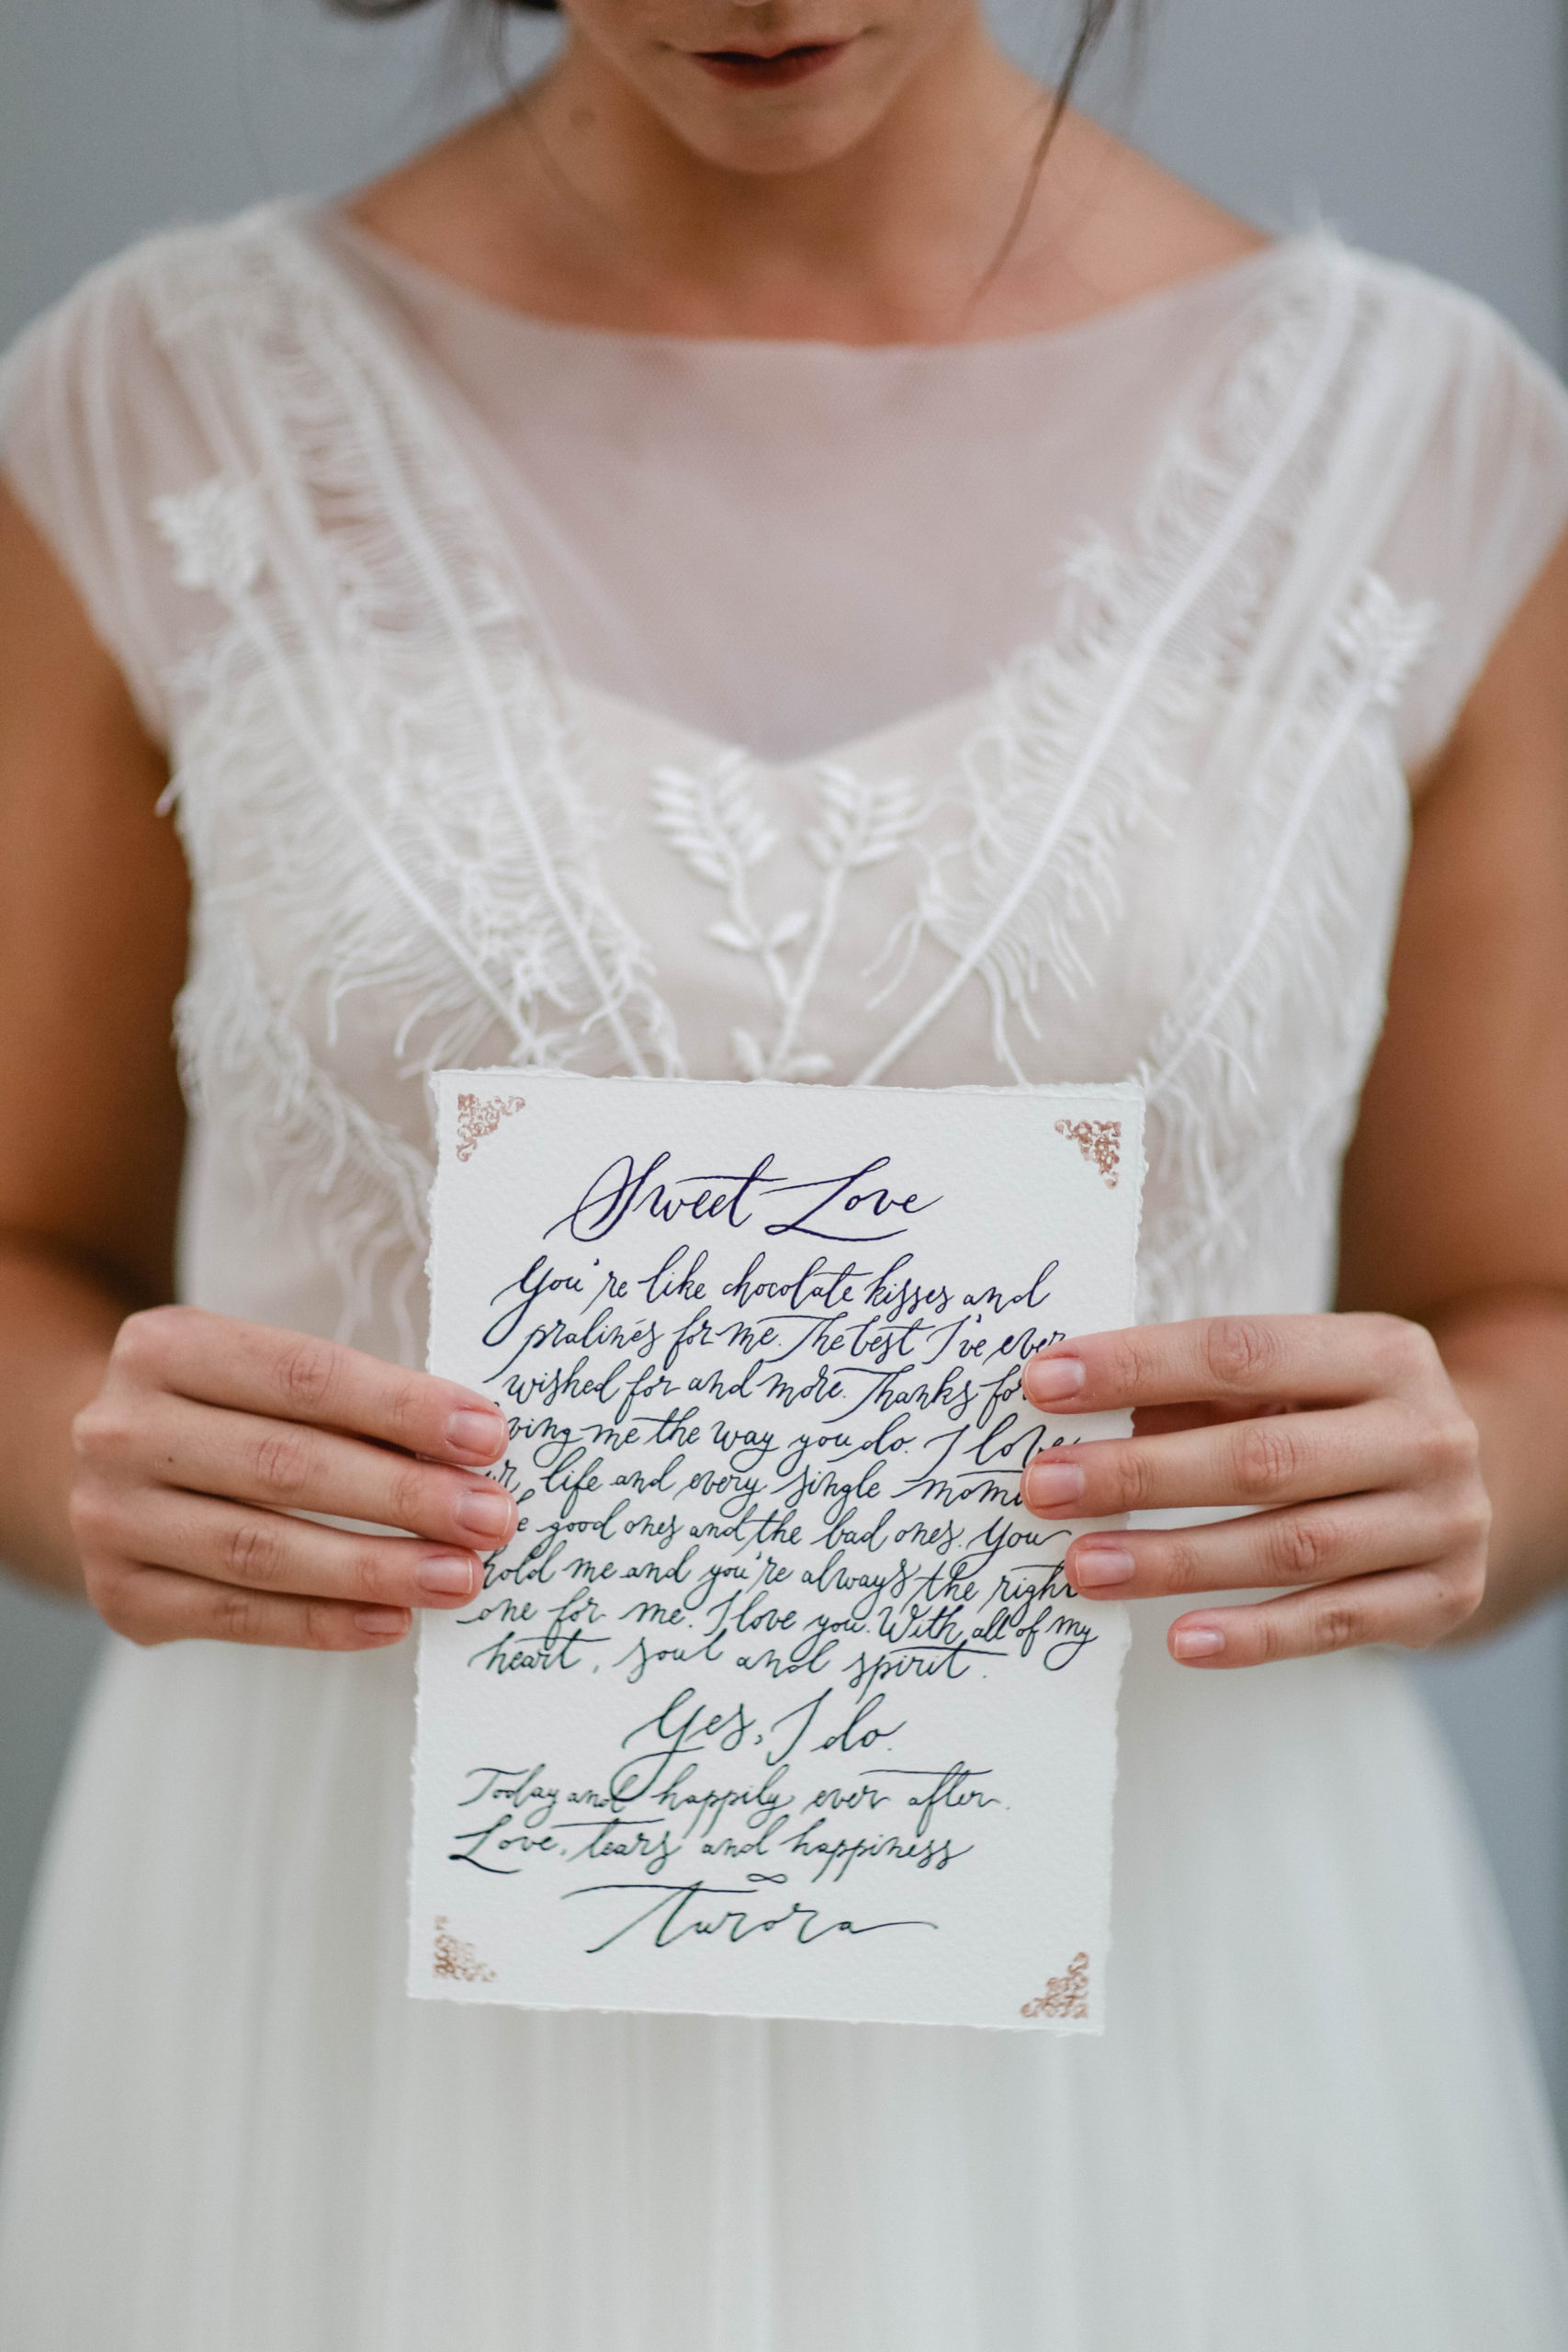 Sweet Love
You're like chocolate kisses and
pralinés for me. The best I've ever
wished for and more. Thanks for
ving me the way you do. I love
ur life and every single mome
e good ones and the bad ones. You
hold me and you're always the right
one for me. I love you. With all of my
heart, soul and spirit.
Yes, I do.
Today and happily ever after.
Love, tears and happiness
∞
Aurora